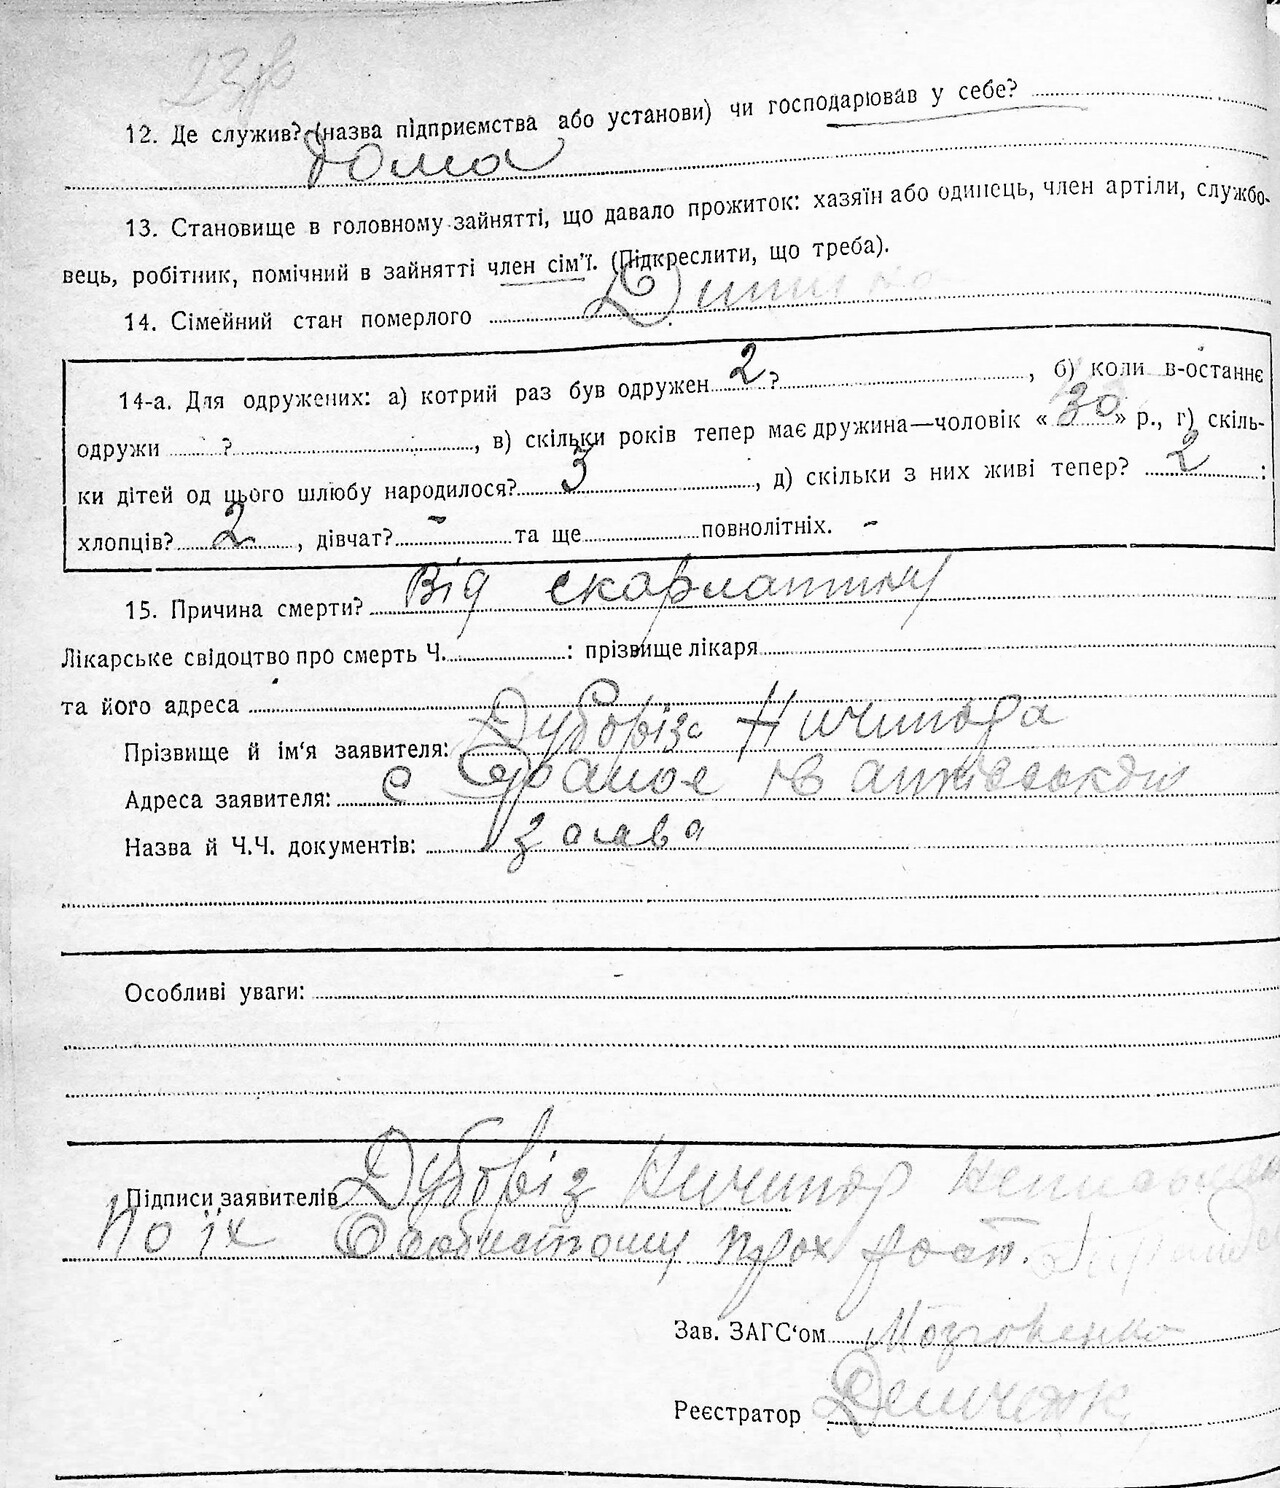 12. Де служив? (назва підприємства або установи) чи господарював у себе?
Дома
13. Становище в головному зайнятті, що давало прожиток: хазяїн або одинець, член артіли, службо-
вець, робітник, помічний в зайнятті член сім'ї. (Підкреслити, що треба).
14. Сімейний стан померлого Дитина
14-а. Для одружених: а) котрий раз був одружен 2 ?, б) коли в-останнє
одружи ?, в) скільки років тепер має дружина—чоловік « 30 » р., г) скіль-
ки дітей од цього шлюбу народилося? 3, д) скільки з них живі тепер? 2 :
хлопців? 2, дівчат? - та ще повнолітніх. -
15. Причина смерти? Від скарлатини
Лікарське свідоцтво про смерть Ч. : прізвище лікаря
та його адреса
Прізвище й ім'я заявителя: Дуборіза Ничипора
Адреса заявителя: с
Назва й Ч.Ч. документів: заява
Особливі уваги:
Підписи заявителів Дуборіз Ничипор
По їх Особистому прох
Зав. ЗАГС'ом Мозговенко
Реєстратор